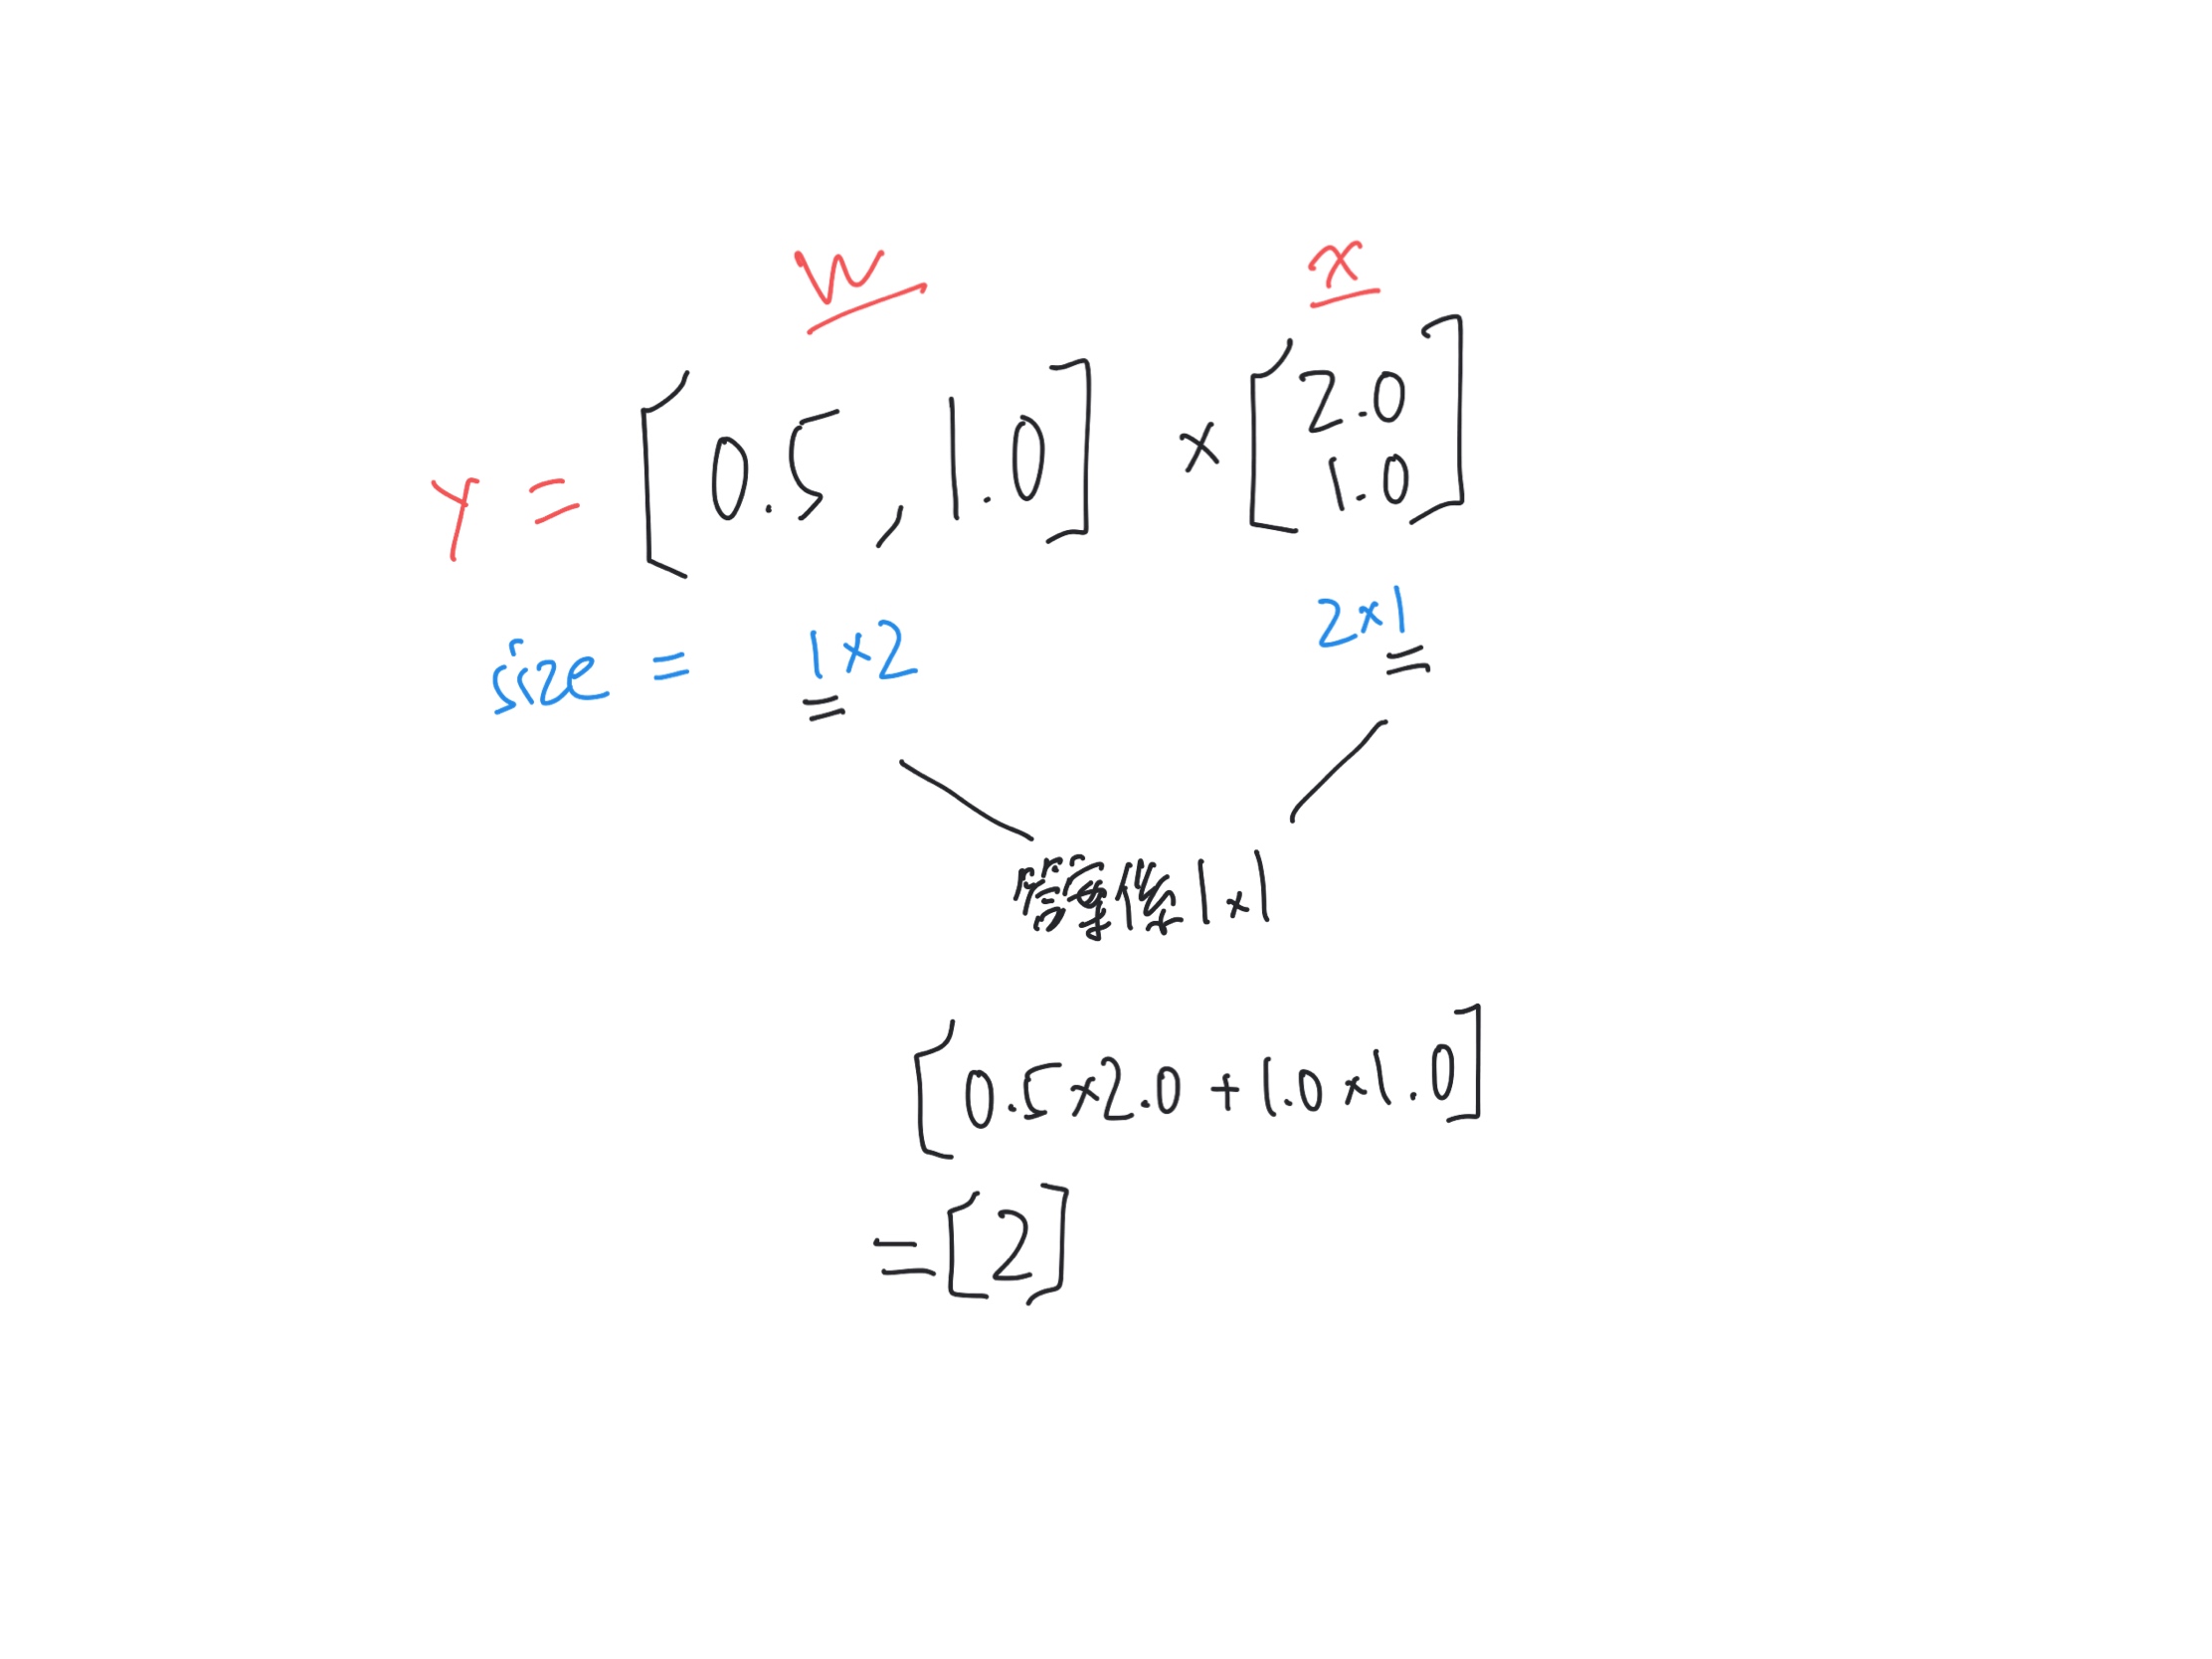 W x
y = [0.5, 1.0] × [2.0
1.0]
size = 1×2 2×1
答案係 1×1
[0.5×2.0 + 1.0×1.0]
= [2]